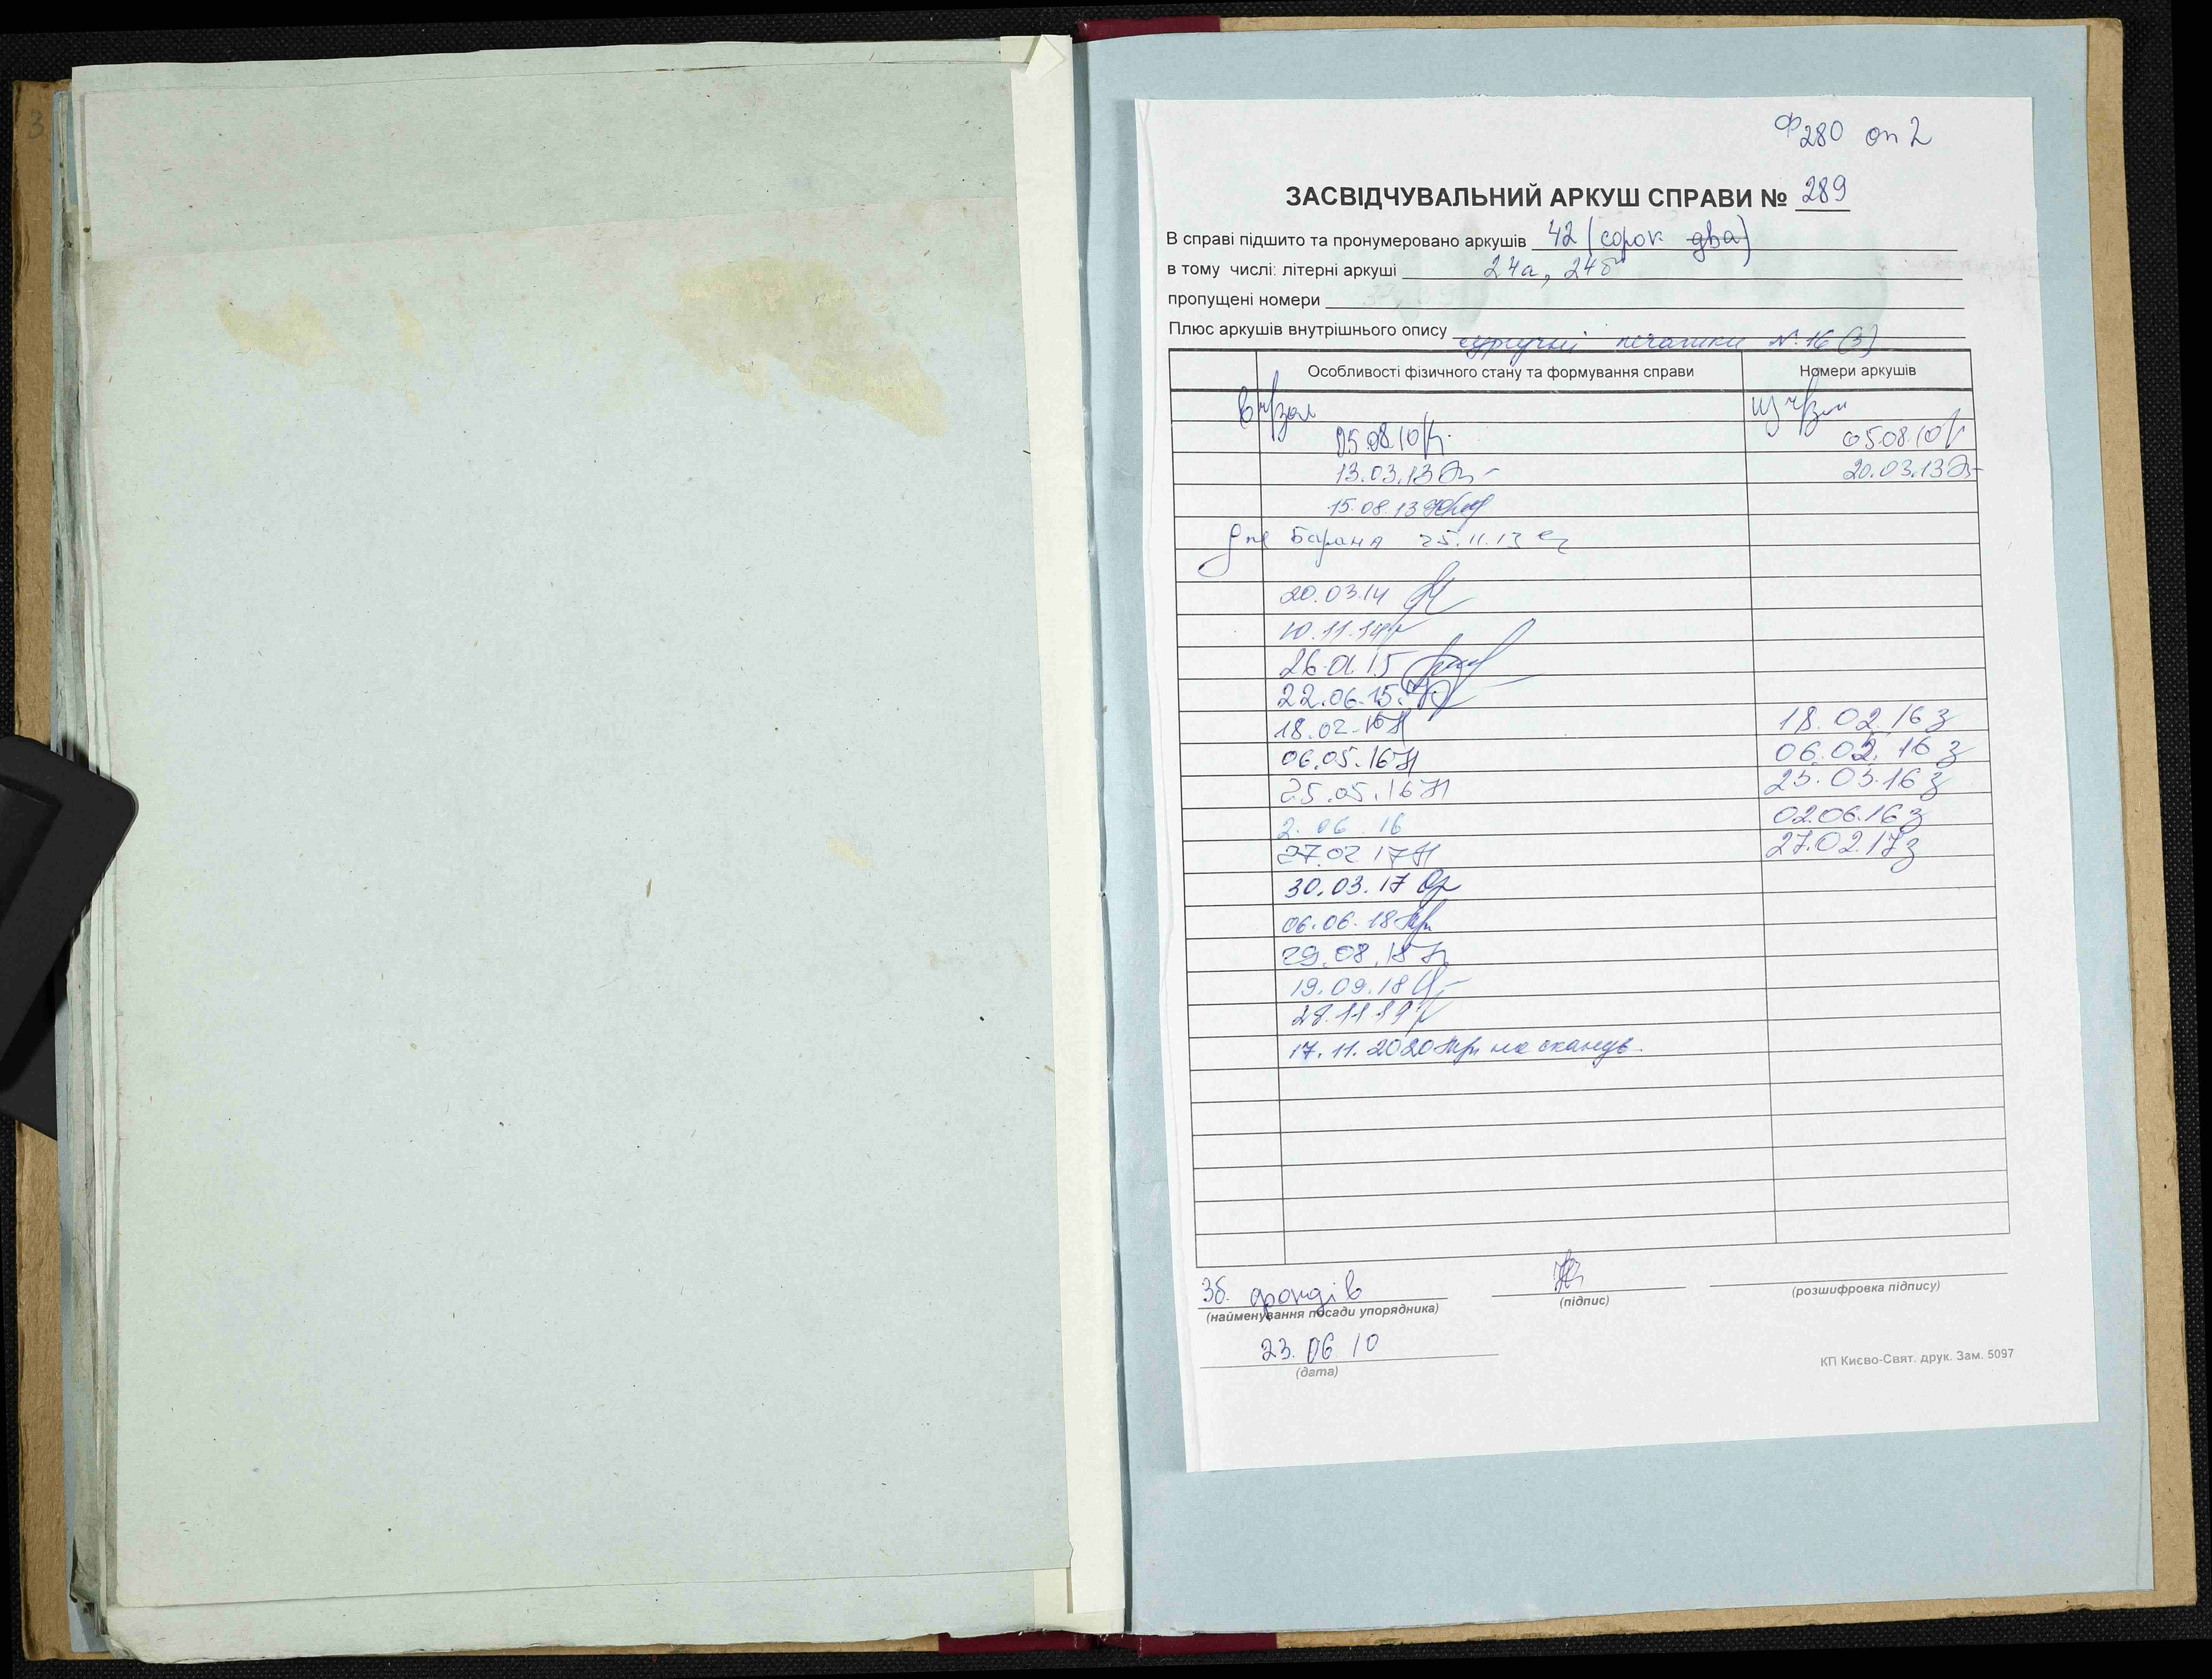 3
Ф280 оп 2
ЗАСВІДЧУВАЛЬНИЙ АРКУШ СПРАВИ № 289
В справі підшито та пронумеровано аркушів 42 (сорок два)
в тому числі: літерні аркуші 24а, 24б
пропущені номери
Плюс аркушів внутрішнього опису сургучні печатки № 16 (3)
Особливості фізичного стану та формування справи Номери аркушів
в ч/зал из ч/зал
05.08.10 05.08.10
13.03.13 20.03.13
15.08.13
для Барана 25.11.13
20.03.14
10.11.14
26.01.15
22.06.15
18.02.16 18.02.16 з
06.05.16 06.02.16 з
25.05.16 25.05.16 з
2.06.16 02.06.16 з
27.02.17 27.02.17 з
30.03.17
06.06.18
29.08.18
19.09.18
28.11.19
17.11.2020 на сканув.
Зб. фондів
(найменування посади упорядника) (підпис) (розшифровка підпису)
23.06.10
(дата)
КП Києво-Свят. друк. Зам. 5097